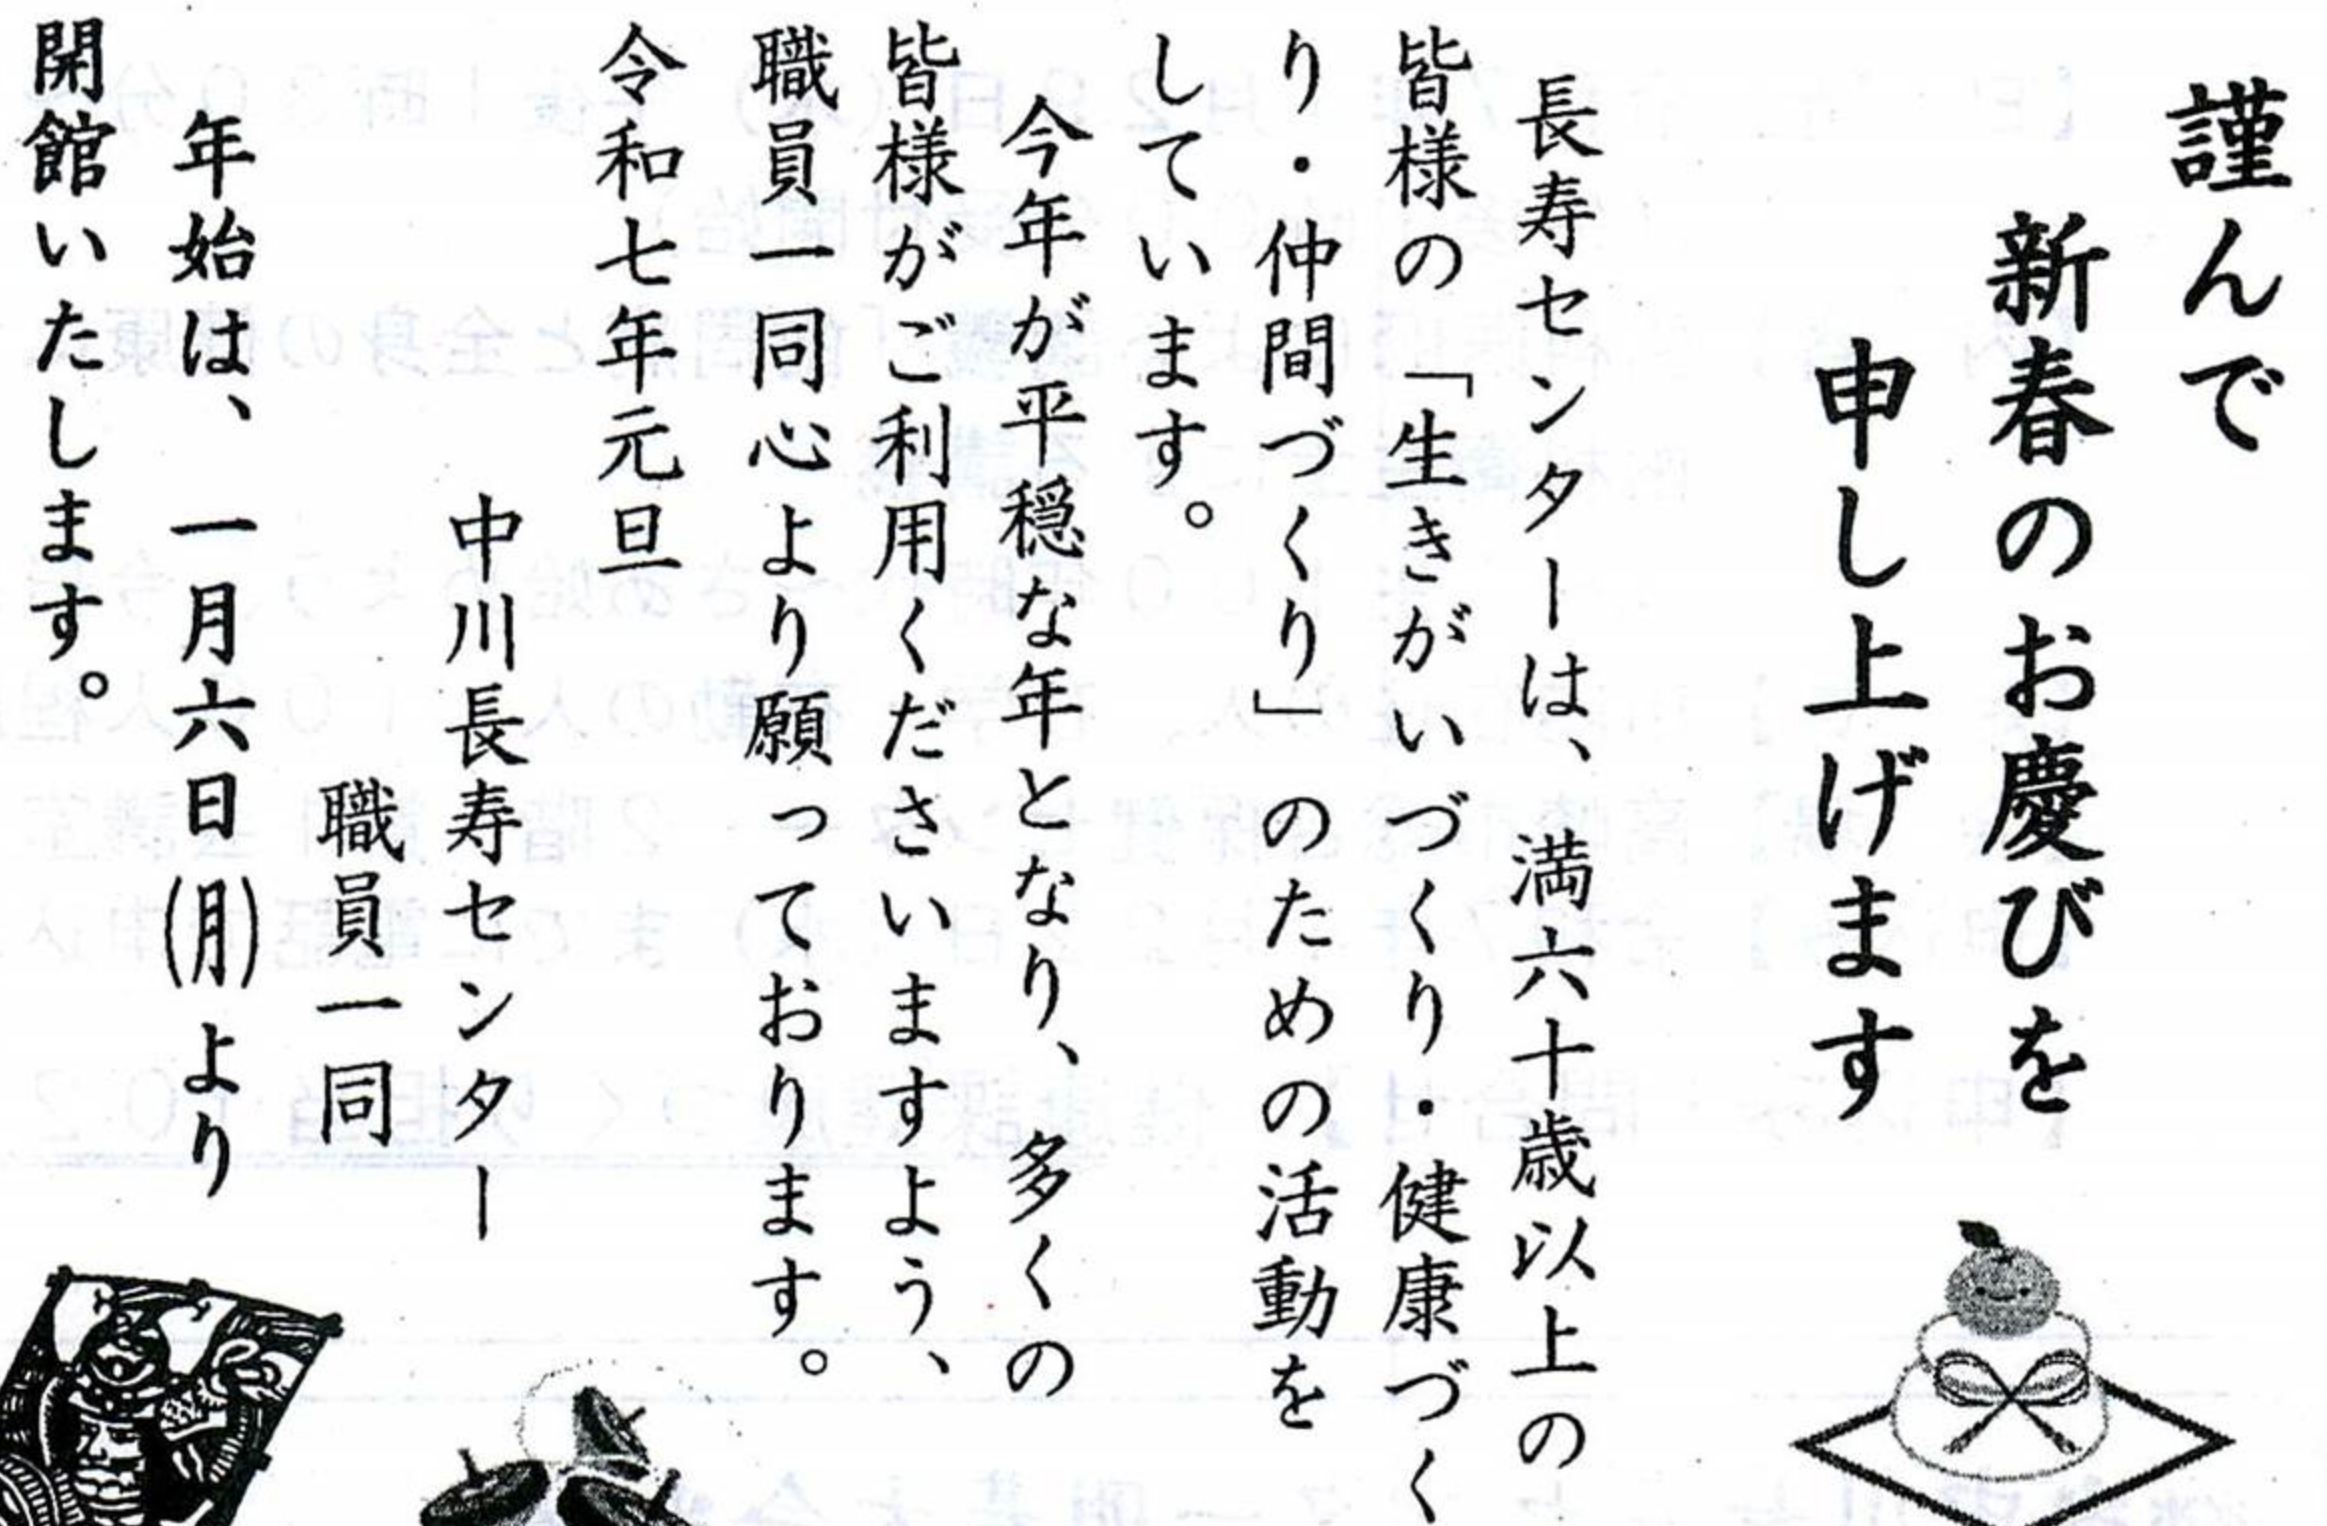 謹んで
新春のお慶びを
申し上げます
長寿センターは、満六十歳以上の
皆様の「生きがいづくり・健康づく
り・仲間づくり」のための活動を
しています。
今年が平穏な年となり、多くの
皆様がご利用くださいますよう、
職員一同心より願っております。
令和七年元旦
中川長寿センター
職員一同
年始は、一月六日(月)より
開館いたします。